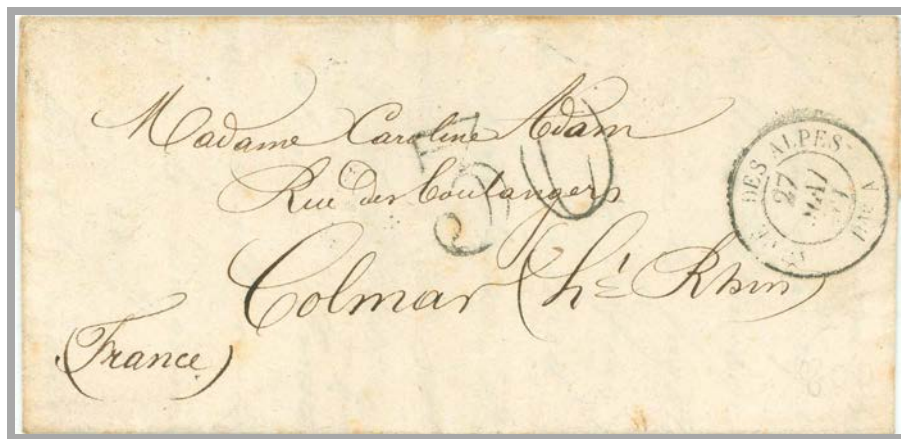 Madame Caroline Adam
Rue des boulangers
Colmar (ht Rhin)
(France)
50
DES ALPES
27
MAI